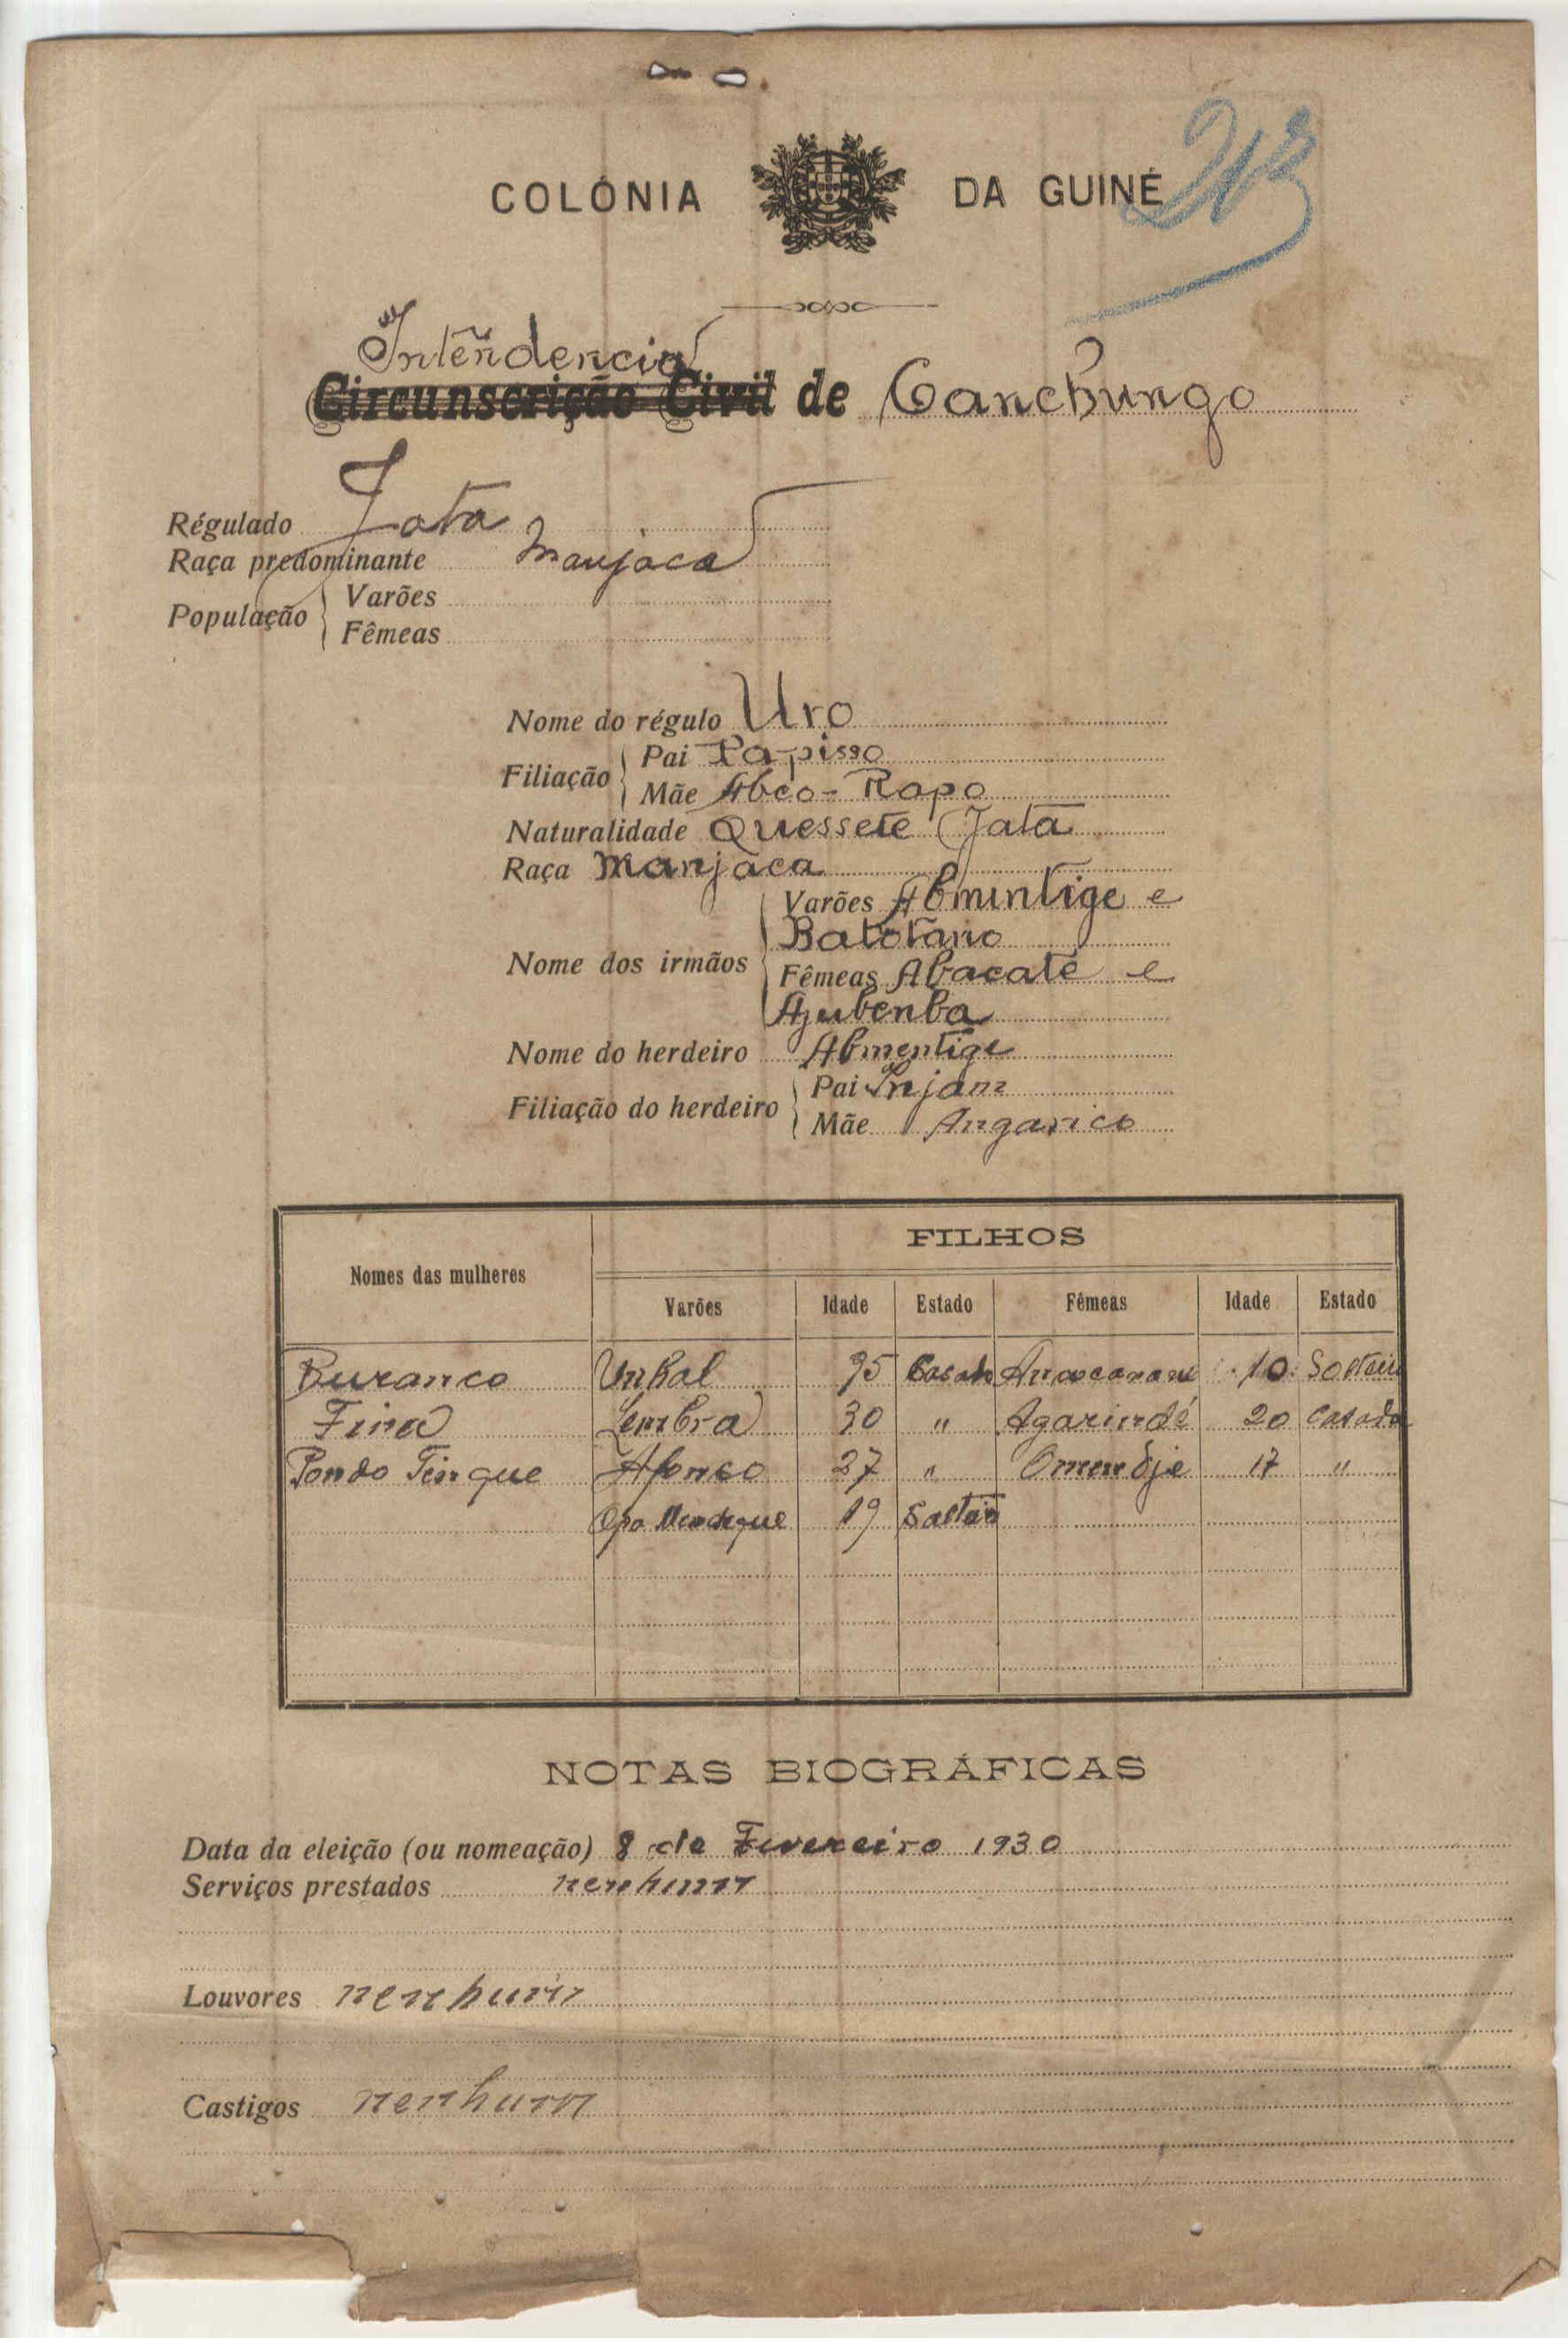 COLÓNIA DA GUINÉ
Intendencia
Circunscrição Civil de Canchungo
Régulado Jata
Raça predominante Manjaca
População Varões
Fêmeas
Nome do régulo Uro
Filiação Pai Papisso
Mãe Abco-Rapo
Naturalidade Quessete (Jata
Raça Manjaca
Varões Abmintige e
Batotano
Nome dos irmãos
Fêmeas Abacate e
Ajubenba
Nome do herdeiro Abmentige
Filiação do herdeiro Pai Injam
Mãe Angarico
FILHOS
Nomes das mulheres
Varões Idade Estado Fêmeas Idade Estado
Buranco Unkal 35 Casado 10 Solteira
Fina Lembra 30 " Agarindé 20 Casada
Pondo Tingue Afonso 27 " 17 "
Opa 19 Solteiro
NOTAS BIOGRÁFICAS
Data da eleição (ou nomeação) 8 de Fevereiro 1930
Serviços prestados nenhum
Louvores nenhum
Castigos nenhum